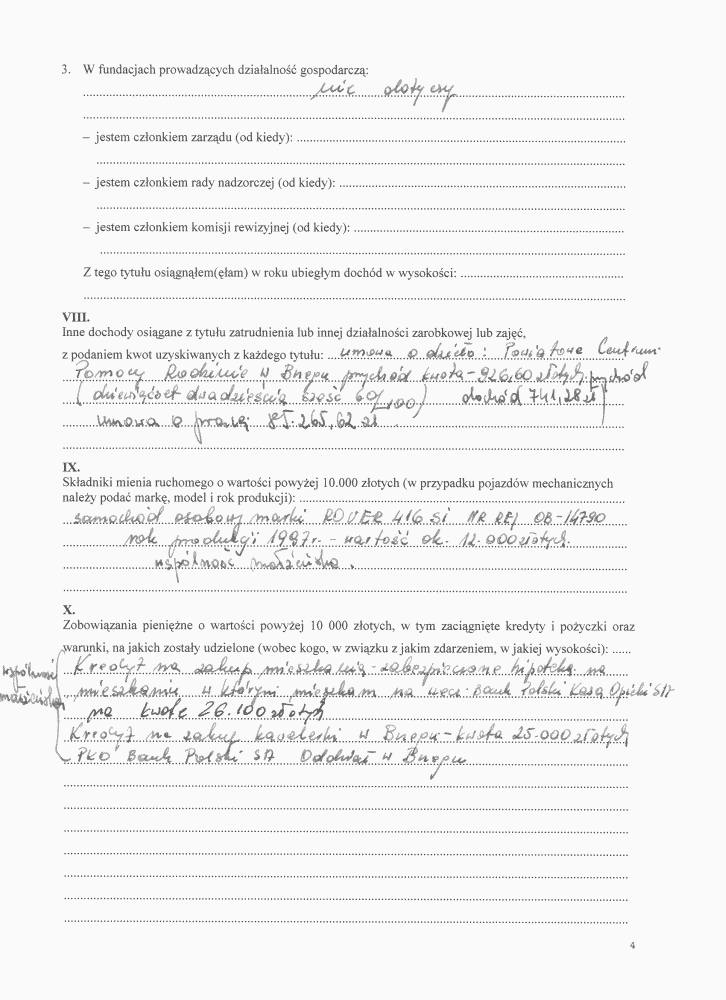 3. W fundacjach prowadzących działalność gospodarczą:
nic dotyczy
– jestem członkiem zarządu (od kiedy):
– jestem członkiem rady nadzorczej (od kiedy):
– jestem członkiem komisji rewizyjnej (od kiedy):
Z tego tytułu osiągnąłem(ęłam) w roku ubiegłym dochód w wysokości:
VIII.
Inne dochody osiągane z tytułu zatrudnienia lub innej działalności zarobkowej lub zajęć,
z podaniem kwot uzyskiwanych z każdego tytułu: umowa o dzieło: Powiatowe Centrum
Pomocy Rodzinie w Brzegu przychód kwota - 926,60 złotych przychód
(dziewięćset dwadzieścia sześć 60/100) dochód 741,28 zł
umowa o pracę 85.265,62 zł
IX.
Składniki mienia ruchomego o wartości powyżej 10.000 złotych (w przypadku pojazdów mechanicznych
należy podać markę, model i rok produkcji):
samochód osobowy marki ROVER 416 Si NR REJ OB-14790
rok produkcji 1997r. - wartość ok. 12.000 złotych.
wspólność małżeńska.
X.
Zobowiązania pieniężne o wartości powyżej 10 000 złotych, w tym zaciągnięte kredyty i pożyczki oraz
warunki, na jakich zostały udzielone (wobec kogo, w związku z jakim zdarzeniem, w jakiej wysokości):
wspólność
małżeńska
Kredyt na zakup mieszkania - zabezpieczone hipoteką na
mieszkanie w którym mieszkam na rzecz: Bank Polski Kasa Opieki SA
na kwotę 26.100 złotych
Kredyt na zakup kawalerki w Brzegu - kwota 25.000 złotych
PKO Bank Polski SA Oddział w Brzegu
4